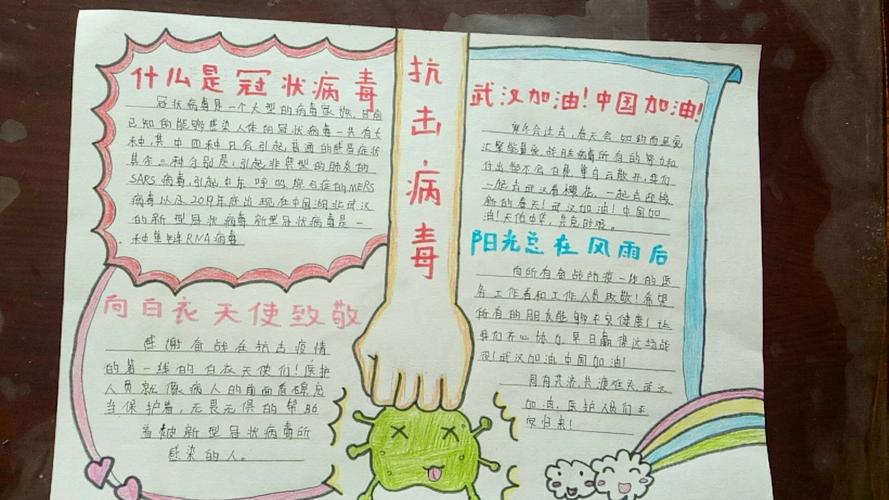 什么是冠状病毒
冠状病毒是一个大型的病毒家族,目前
已知的能够感染人体的冠状病毒一共有七
种,其中四种只会引起普通的感冒症状
其余三种分别是:引起非典型的肺炎的
SARS病毒,引起中东呼吸综合症的MERS
病毒以及2019年底出现在中国湖北武汉
的新型冠状病毒新型冠状病毒是一
种单链RNA病毒
向白衣天使致敬
感谢奋战在抗击疫情
的第一线的白衣天使们!医护
人员就像病人的
当保护着,无畏无惧的帮助
着被新型冠状病毒所
感染的人。
抗击病毒
武汉加油!中国加油!
春天会如约而至爱
汇聚能量爱,战胜病毒所有的努力和
付出都不会白费
一起去武汉看樱花,一起去迎接
新的春天!武汉加油!中国加
油!天佑中华,共克时艰。
阳光总在风雨后
向所有奋战防疫一线的医
务工作者和工作人员致敬!希望
所有的朋友能够平安健康!让
我们齐心协力早日赢得这场战
役!武汉加油中国加油!
同舟共济共渡难关武汉
加油,医护人员们平
安归来!